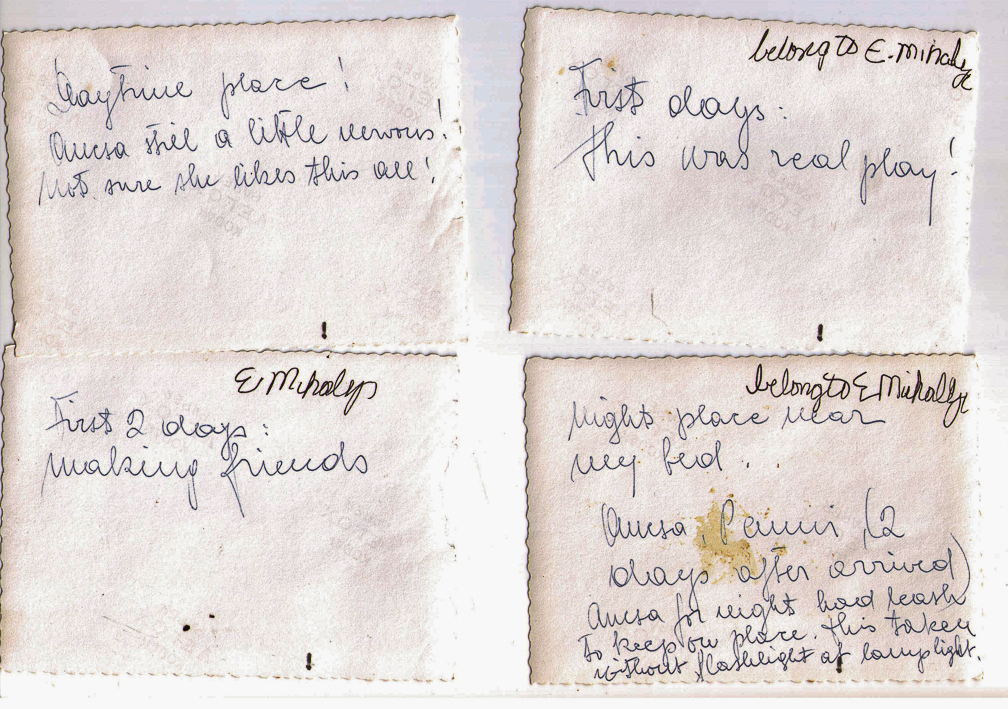 Daytime place!
Ancsa still a little nervous!
Not sure she likes this all!
belong to E. Mihalyi
First days:
This was real play!
E Mihalyi
First 2 days:
making friends
belong to E Mihalyi
Night place near
my bed.
Ancsa, Pennni (2
days after arrived)
Ancsa for night had leash
to keep on place. This taken
without flashlight at lamplight.